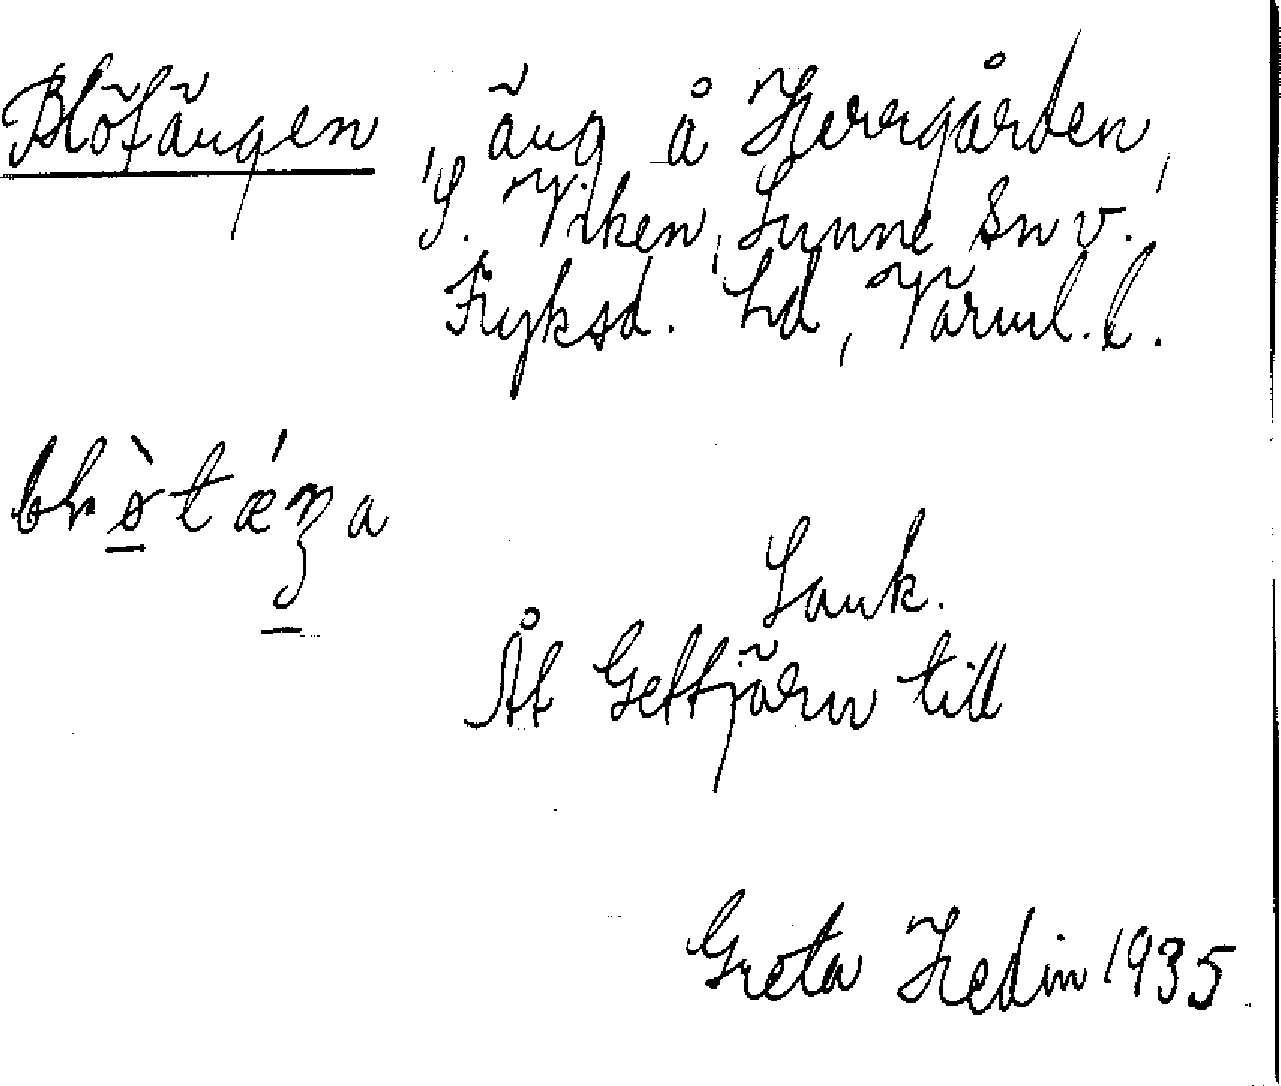 Blötängen, äng å Herrgården,
S. Viken, Lunne Sn v.
Fryksd. hd, Värml. l.
Sank.
Åt Gettjärn till
Greta Hedin 1935